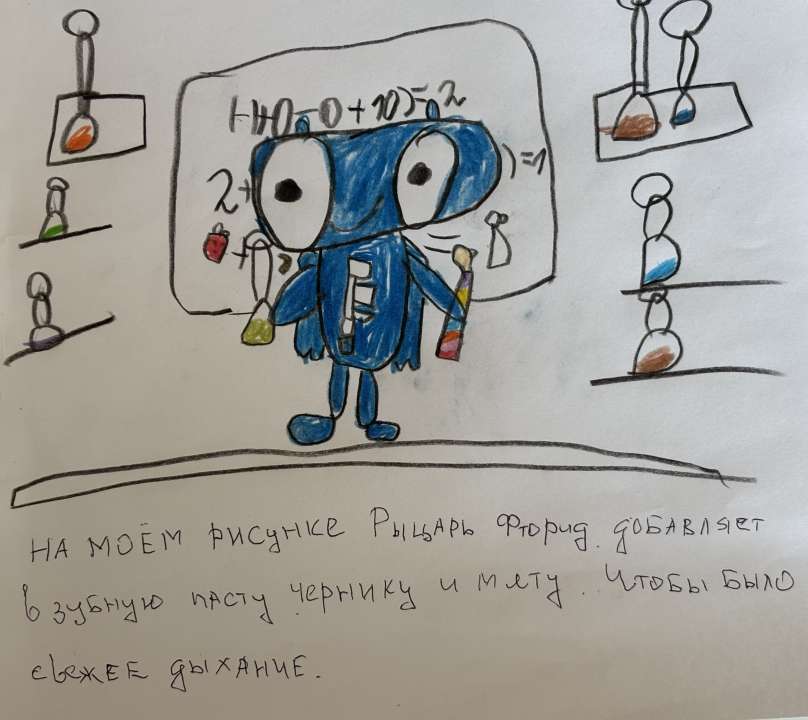 -110-0+10)=2
2+
)=1
+
=
НА МОЁМ РИСУНКЕ РЫЦАРЬ ФТОРИД. ДОБАВЛЯЕТ
В ЗУБНУЮ ПАСТУ ЧЕРНИКУ И МЯТУ. ЧТОБЫ БЫЛО
СВЕЖЕЕ ДЫХАНИЕ.